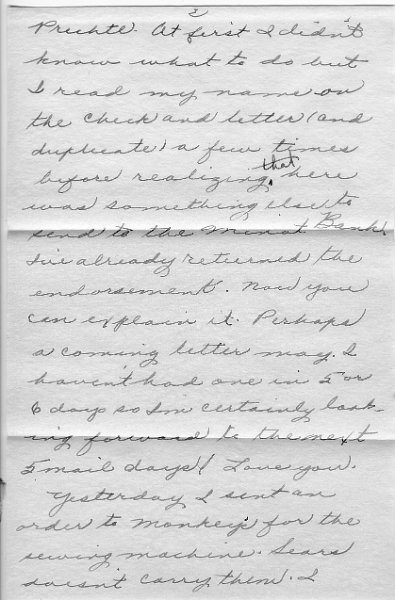 2
Pruhte. At first I didn't
know what to do but
I read my name on
the check and letter (and
duplicate) a few times
before realizing that here
was something else to
send to the Minot Bank.
I've already returned the
endorsement. Now you
can explain it. Perhaps
a coming letter may. I
haven't had one in 5 or
6 days so I'm certainly look-
ing forward to the next
5 mail days! Love you.
Yesterday I sent an
order to Monkeys for the
sewing machine. Sears
doesn't carry them. I